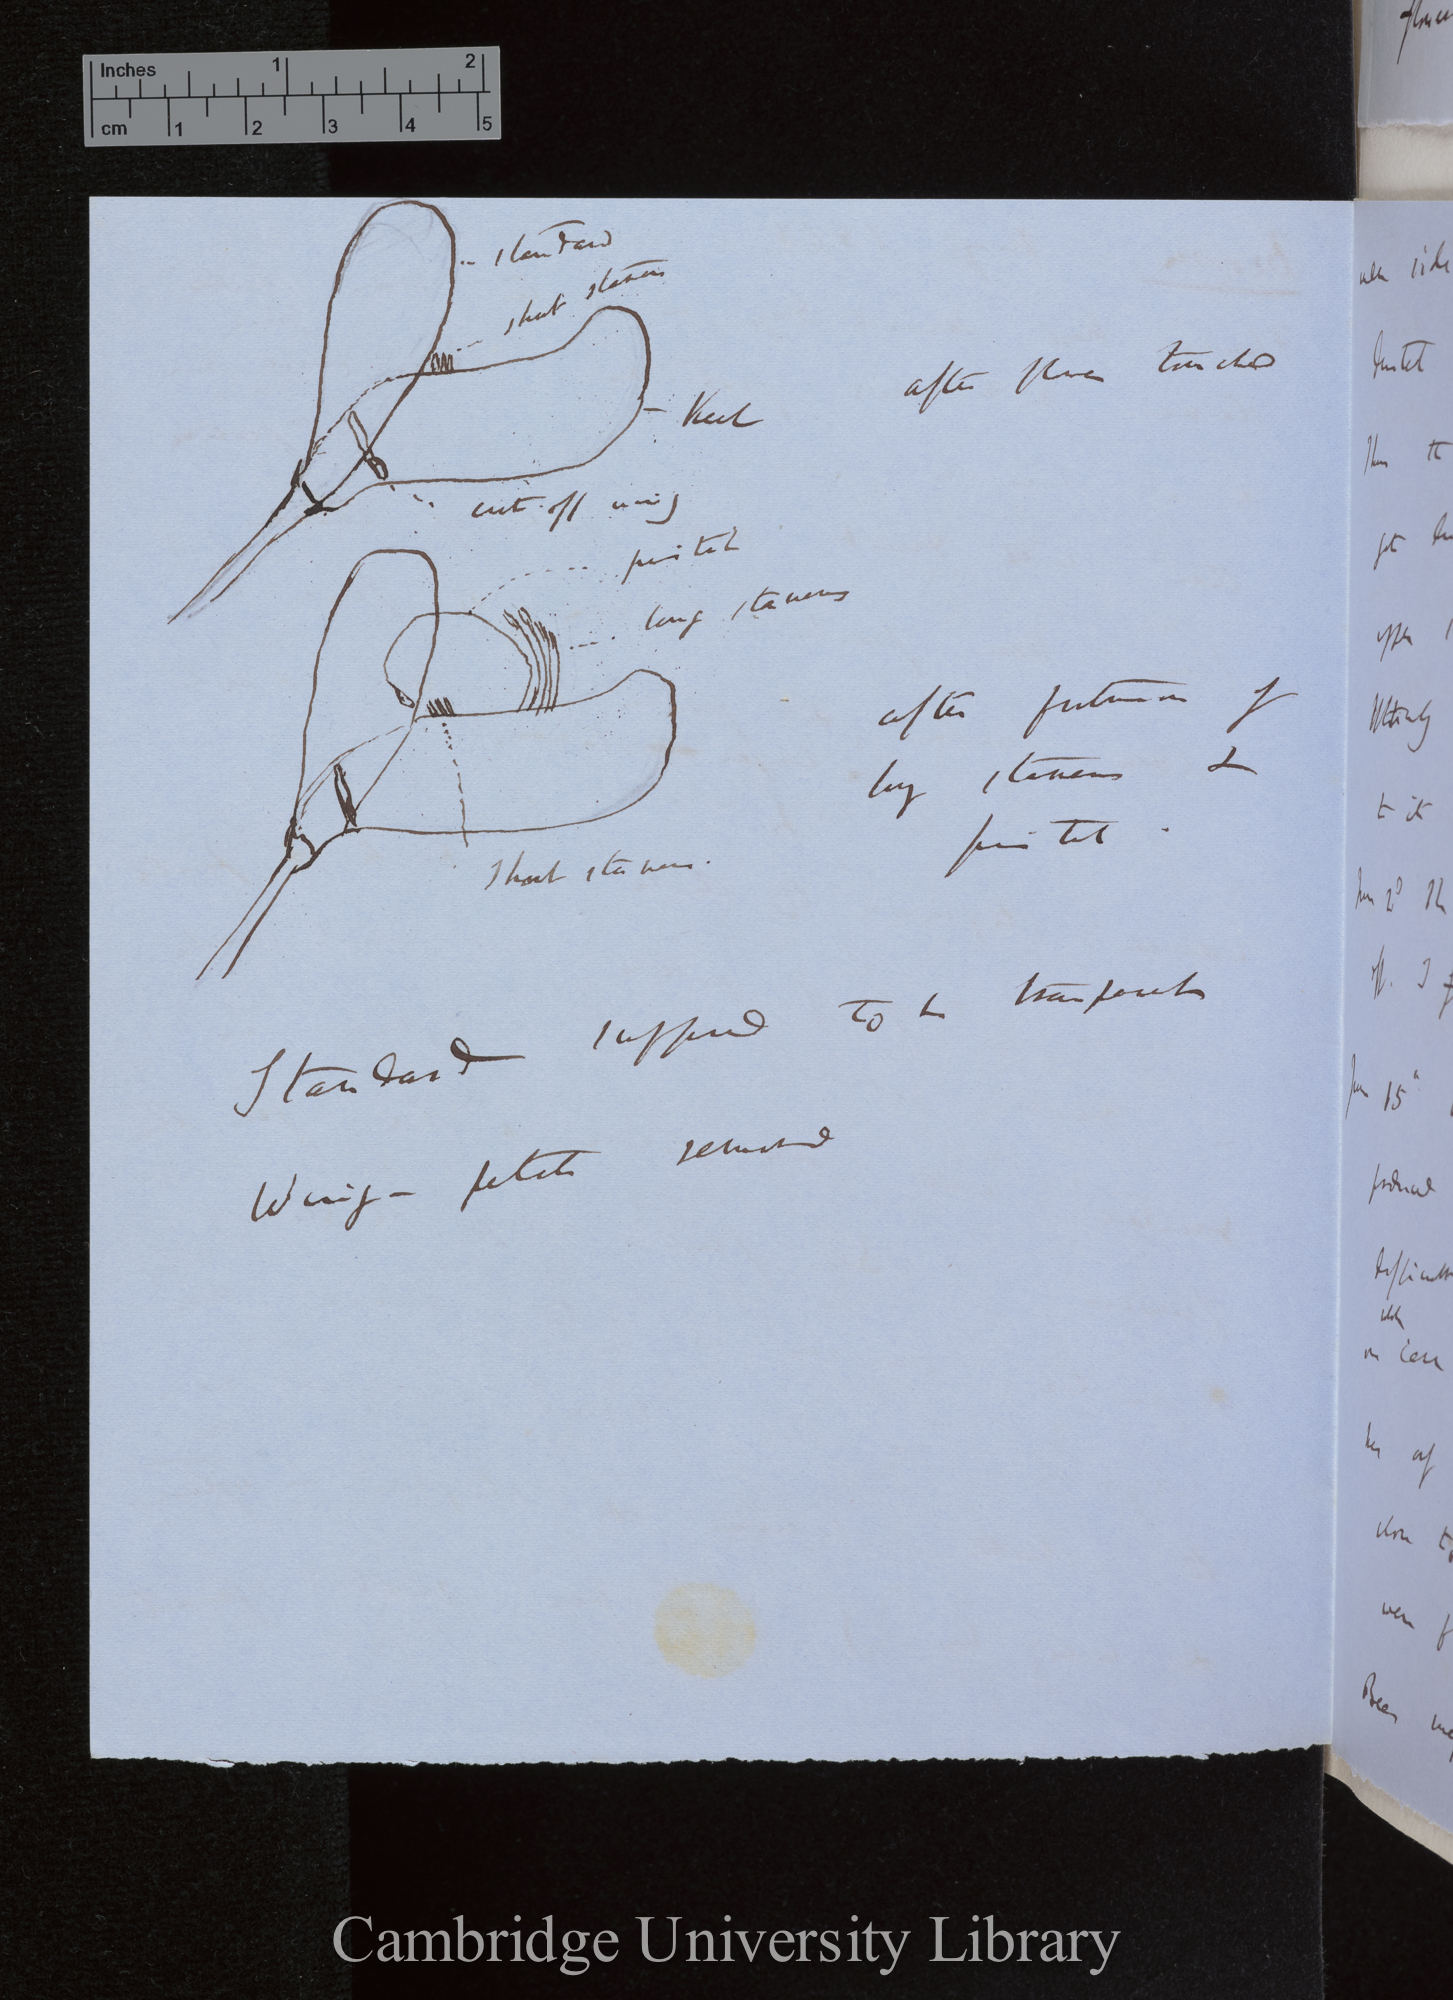 Inches 1 2
cm 1 2 3 4 5
standard
short stamens
Keel
after flower touched
cut off wing
pistil
long stamens
after protrusion of
long stamens &
pistil.
Short stamens.
Standard supposed to be transparent
Wing – petals removed
side
June 15
produced
Bees
Cambridge University Library